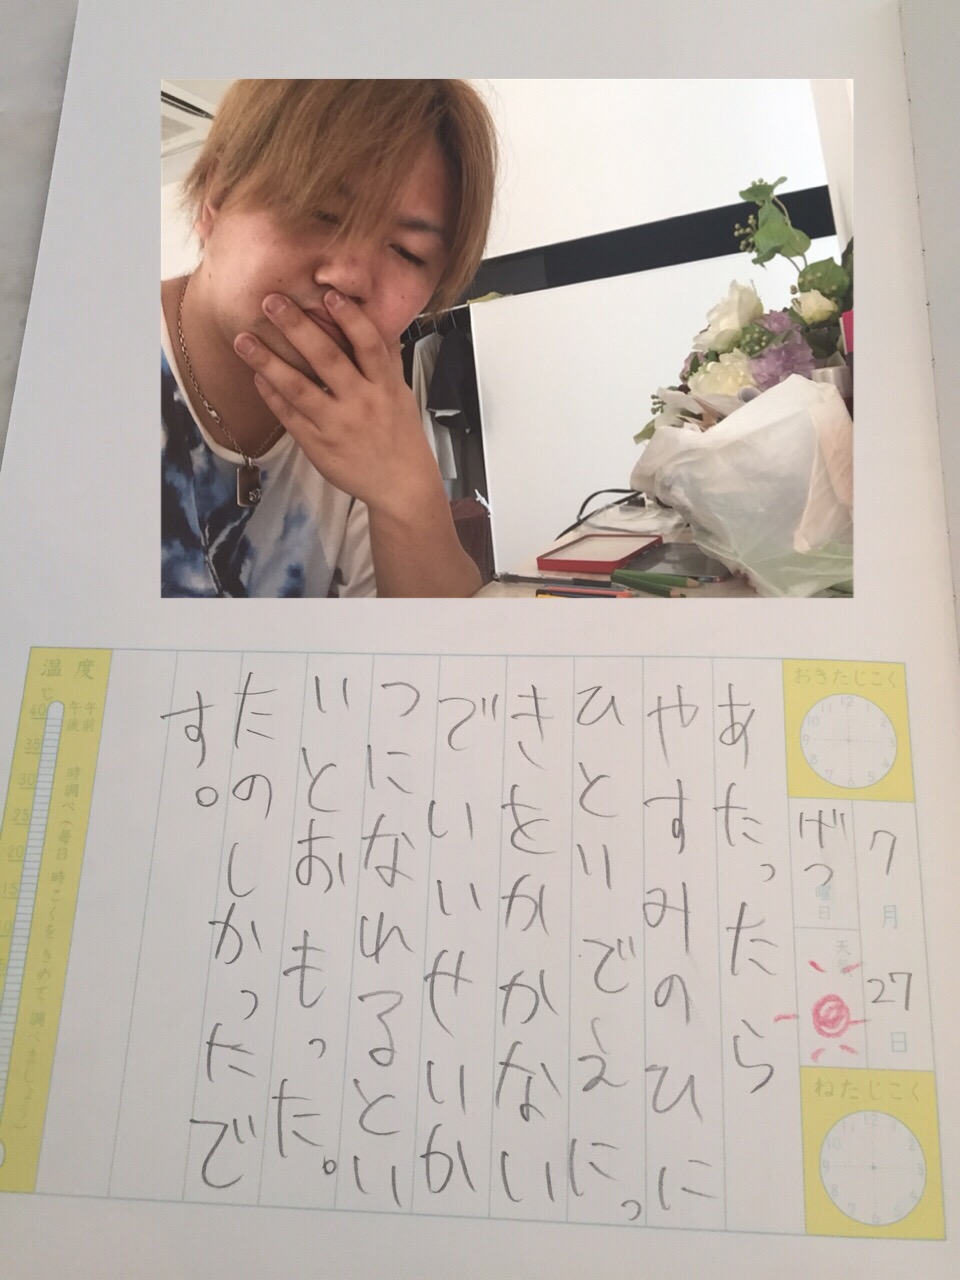 おきたじこく
7月27日
げつ曜日
天気
ねたじこく
あたったら
やすみのひに
ひとりでえにっ
きをかかない
でいいせいか
つになれるとい
いとおもった。
たのしかったで
す。
温度
℃
午前
午後
時調べ(毎日 時こくを きめて 調べましょう)
40
35
30
25
20
15